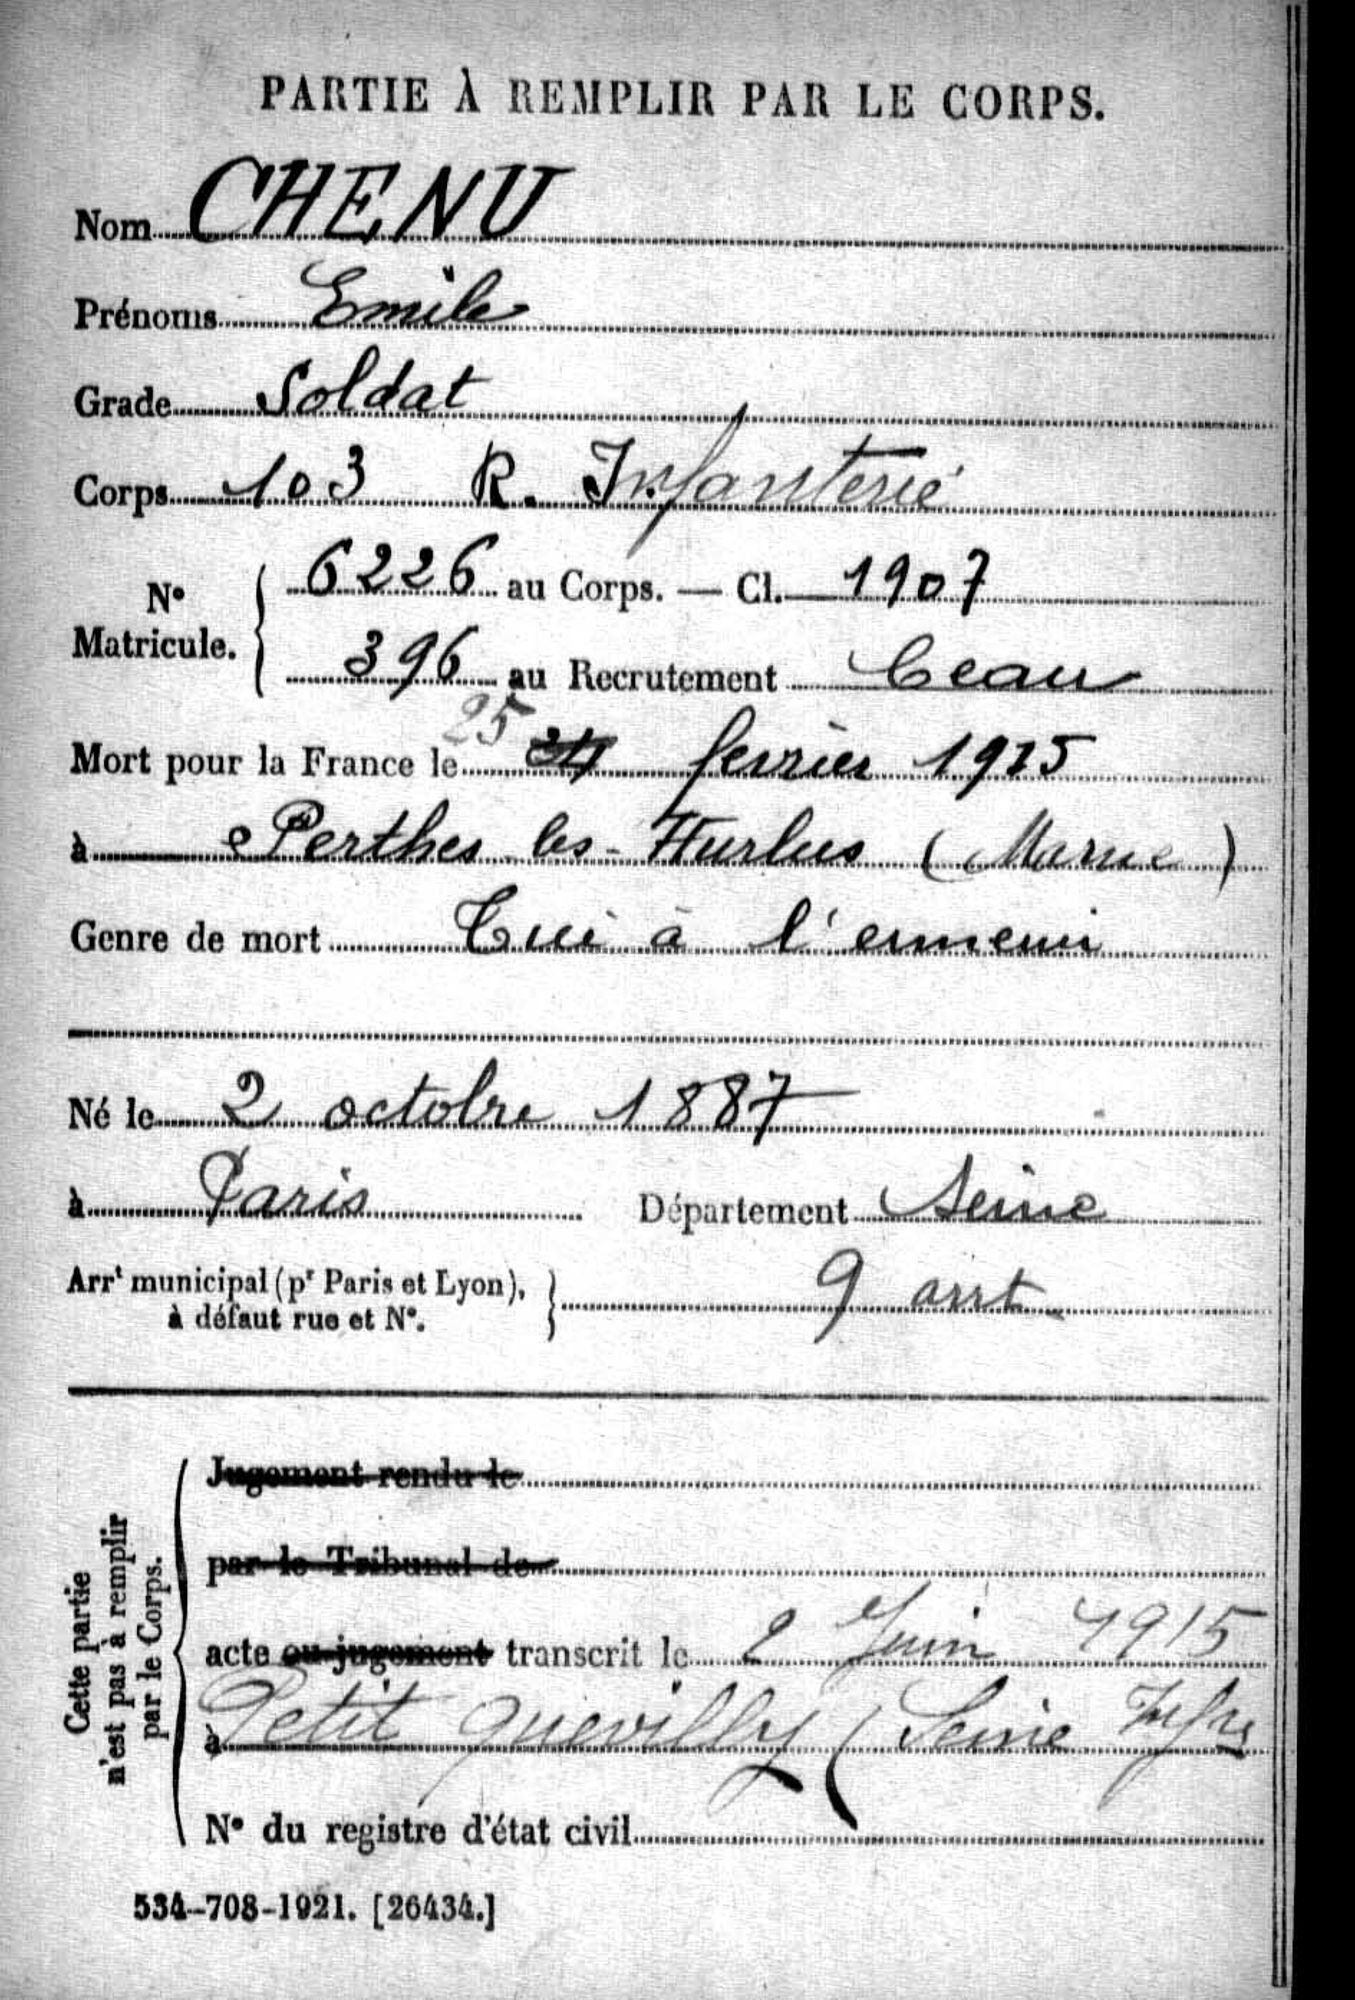 PARTIE À REMPLIR PAR LE CORPS.
Nom CHENU
Prénoms Emile
Grade Soldat
Corps 103 R. Infanterie
N° Matricule. 6226 au Corps. — Cl. 1907
396 au Recrutement Ceau
Mort pour la France le 25 24 fevrier 1915
à Perthes-les-Hurlus (Marne)
Genre de mort Tué à l'ennemi
Né le 2 octobre 1887
à Paris Département Seine
Arrt municipal (pr Paris et Lyon), 9 arrt
à défaut rue et N°.
Cette partie
n'est pas à remplir
par le Corps.
Jugement rendu le
par le Tribunal de
acte ou jugement transcrit le 2 Juin 1915
à Petit Quevilly (Seine Infre
N° du registre d'état civil
534-708-1921. [26434.]